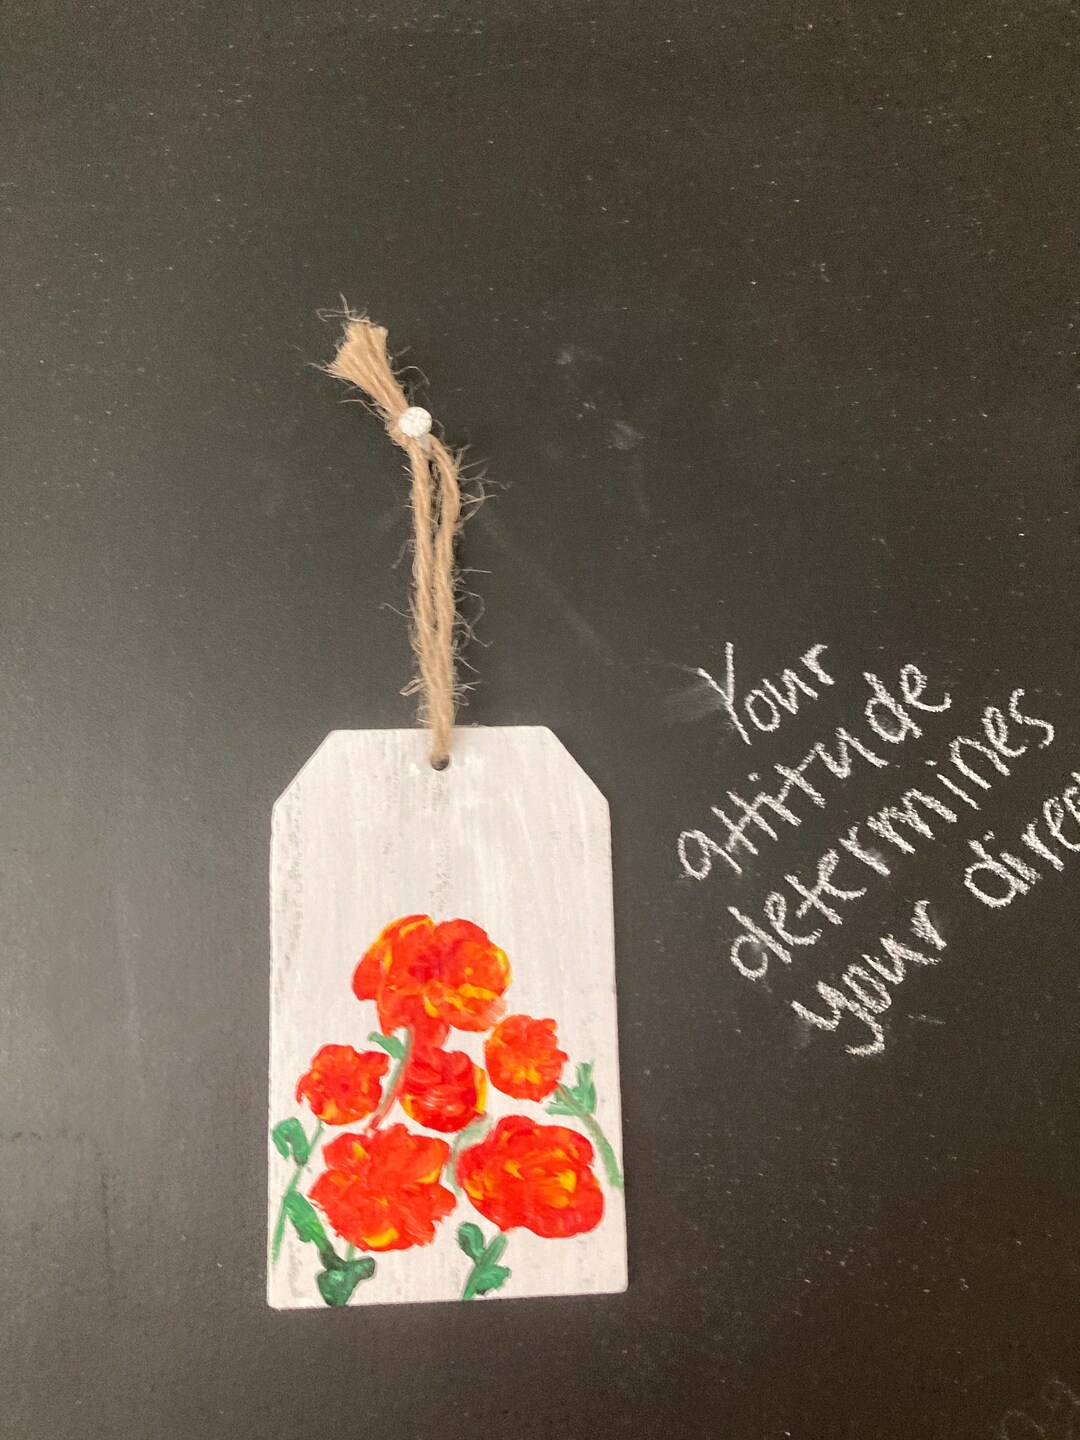 Your
attitude
determines
your direc